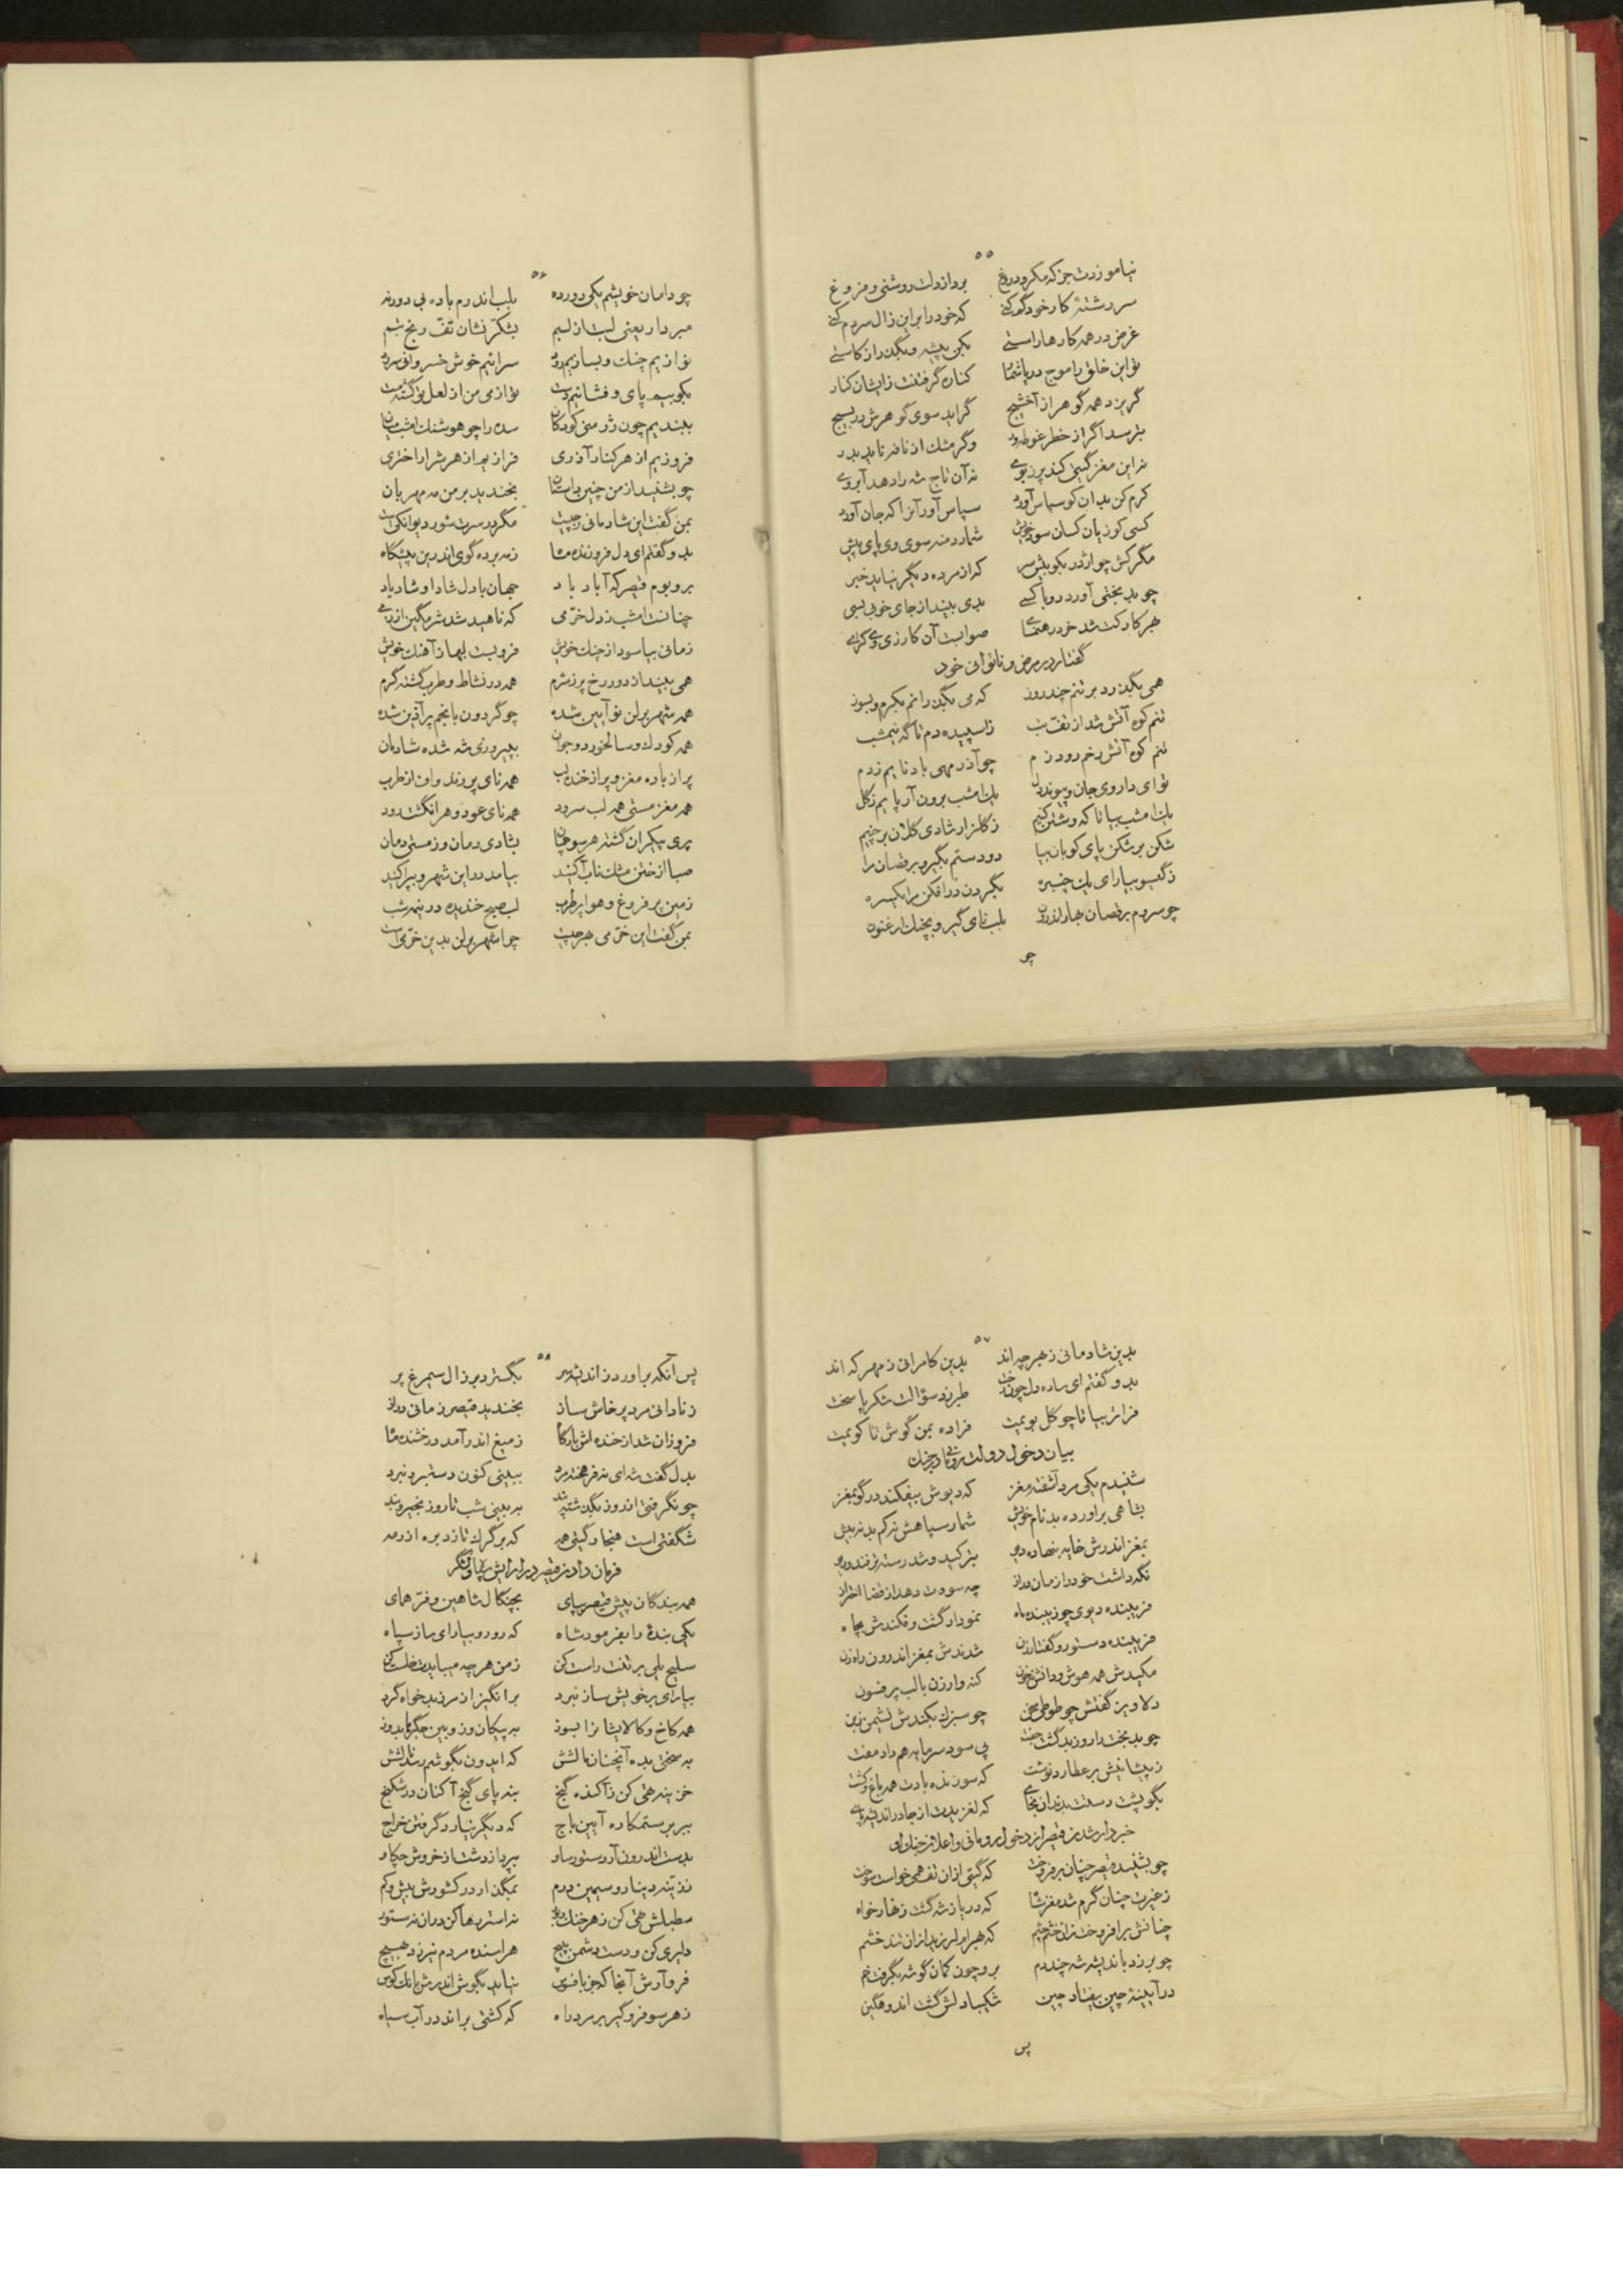 ۵۵
نیاموزدت جز که مکر و دروغ برد از دلت روشنی و فروغ
سر رشتهٔ کار خود گم کنی که خود را برابر زال سر دم کنی
غرض در همه کارها راستی بکن پیشه و بگذر از کاستی
تو این خلق را موج دریا شمار کناره گرفتنت زایشان کنار
گریزد همه گوهر از آخشیج گراید سوی گوهرش در بسیج
بترسد اگر از خطر غوطه‌ور وگر مشک از نافه ناید بدر
نه این مغز گیتی کند پر ز بوی نه آن تاج شه را دهد آبروی
کرم کن بدان کو سپاس آورد سپاس آور آنرا که جان آورد
کسی کو زیان کسان سود خویش شمارد منه سوی وی پای پیش
مگر کش چو اژدر بکوبیش سر که از مرده دیگر نیاید خبر
چو بدبختی آورد رو با کسی بدی بیند از جای خوبی بسی
بهر کار کت شد خرد رهنمای صوابست آن کار زی وی گرای
گفتار در مرض و ناتوانی خود
همی بگذرد بر تنم چند روز که می بگذرانم بگرم و بسوز
تنم کوه آتش شد از تف تب ز اسپیده دم تا گه نیمشب
تنم کوه آتش رخم رود زم چو آذر مهی باد نایم ز دم
توای داروی جان و پیوند دل یک امشب برون آر پایم ز گل
یک امشب بیا تا که وشتن کنیم ز گلزار شادی گلان بر چنیم
شکن بر شکن پای کوبان بیا دو دستم بگیر و برقصان را
ز گیسو بیارای یک چنبره بگردن در افکن مرا یکسره
چو سردم برقصان بهار اندرون بلب نای گیر و بچنک ارغنون
چو
۵۶
چو دامان خویشم یکی دور ده بلب اندرم باده بی دور نه
مبر دار یعنی لبت از لبم بشکر نشان تف و رنج تبم
نوازیم چنک و بسازیم رود سرائیم خوش خسروانی سرود
بکوبیم پای و فشانیم دست تو از می من از لعل تو گشته مست
ببندیم چون زر منی کودکان سده را چو هوشنک امشب میان
فروزیم از هر کنار آذری فرازیم از هر شرار اختری
چو بشنید از من چنین داستان بخندید بر من مه مهربان
بمن گفت این شادمانی ز چیست مگر در سرت شور دیوانکیست
بدو گفتم ای دل فروزنده ماه ز مه برده گوی اندرین پیشگاه
بر و بوم قیصر که آباد باد جهان با دل شاد او شاد باد
چنانست امشب ز دل خرمی که ناهید شد شرمگین از زمی
زمانی بیاسود از چنک خویش فرو بست لبها ز آهنک خویش
همی بیند از دور رخ پر ز شرم همه در نشاط و طرب گشته گرم
همه شهر برلن نو آیین شده چو گردون بانجم پر آذین شده
همه کودک و سالخورد و جوان بپیروزی شه شده شادمان
پر از باده مغز و پر از خنده لب همه نای پر زند واف از طرب
همه مغز مستی همه لب سرود همه نای عود و هر انگشت رود
پری پیکران گشته هر سو چمان بشادی دمان و ز مستی دمان
صبا از ختن مشک ناب آکنید بیامد در این شهر و بپراکنید
زمین پر فروغ و هوا پر طرب لب صبح خندیده در نیمه شب
بمن گفت این خرمی بهر چیست چرا شهر برلن بدین خرمیست
۵۷
بدین شادمانی ز بهر چه اند بدین کامرانی ز مهر که اند
بدو گفتم ای ساده دل چون درخت طبرزد سؤالت شکر پا سخت
فراتر بیا تا چو گل بویمت فراده بمن گوش تا گویمت
بیان دخول دولت رومانی در جنک
شنیدم یکی مرد آشفته مغز که دیوش بیفکند در گو بمغز
بشاهی برآورده بد نام خویش شمار سپاهش نه کم بد نه بیش
بمغز اندرش خایه بنهاده دیو بترکید و شد رسته ترفند و ریو
نگه داشت خود را زمان دراز چه سودت دهد از قضا احتراز
فریبنده دیوی چو زیبنده ماه نمودار گشت و فکندش بچاه
فریبنده دستور و گفتار زن شدندش بمغز اندرون راه زن
مکیدش همه هوش و دانش ز خون کنه وار زن با لب پر فسون
دلاویز گفتش چو طوطی سخن چو سبزک بکندش نشیمن ز بن
چو بدبخت را روز بد گشت جفت پی سود سرمایه هم داد مفت
ز پیشانیش بر عطارد نوشت که سوزنده بادت همه باغ و کشت
بگو پشت دستت بدندان بخای که لغزیدت از جا در اندیشه پای
خبردار شدن قیصر از دخول رومانی و اعلان جنک او
چو بشنید قیصر چنان برفروخت که گیتی از ان تف همی خواست سوخت
ز غیرت چنان گرم شد مغز شاه که دریا ز شه گشت زنهار خواه
چنانش برافروخت زان خشم چشم که بهرام لرزید ازان تند خشم
چو بر زد باندیشه شه چند دم برو چون کمان گوشه بگرفت خم
در آیینهٔ چین بیفتاد چین شکیبا دلش گشت اندوهگین
پس
۵۸
پس آنگه برآورد ز اندیشه سر بگسترد بر زال سیمرغ پر
ز نادانی مرد پرخاش ساز بخندید قیصر زمانی دراز
فروزان شد از خنده اش بارگاه ز میغ اندر آمد درخشنده ماه
بدل گفت شه ای نه فرهخته مرد ببینی کنون دستبرد نبرد
چو نگرفتی اندرز بگذشته پند به بینی شب تا روز بجیروند
شگفتی است هنجار گیتی همه که بر گرگ تازد بره از رمه
فرمان دادن قیصر در آرایش سپاه و لشکر
همه بندگان پیش قیصر بپای بچنگال شاهین و فر همای
یکی بندهٔ را بفرمود شاه که رو رو بیارای ساز سپاه
سلیح یلی بر تنت راست کن ز من هر چه میبایدت خاست کن
بیارای بر خویش ساز نبرد برانگیز از مرز بدخواه گرد
همه کاخ و کالایشانرا بسوز به پیکان و زوبین جگرها بدوز
به سختی بده آنچنان مالشش که ایدون بگوشم رسد نالشش
خزینه تهی کن ز آکنده گنج بنه پای گنج آکنان در شکنج
ببر بر ستمکاره آیین باج که دیگر نیارد گرفتن خراج
بدست اندرون آر دستور ساو بپرداز دشت از خروش چکاو
ز زرینه دینار و سیمین درم بمگذار در کشورش بیش و کم
سطبلش تهی کن ز هر خنک و بور نه استر رها کن در ان نه ستور
دلیری کن و دست دشمن بپیچ هراسنده مردم نیرزد بهیچ
فرو آرش آنجا که جز با فسوس نیاید بگوش اندرش بانک کوس
ز هر سو فرو گیر بر مرد راه که کشتی براند در آب سیاه